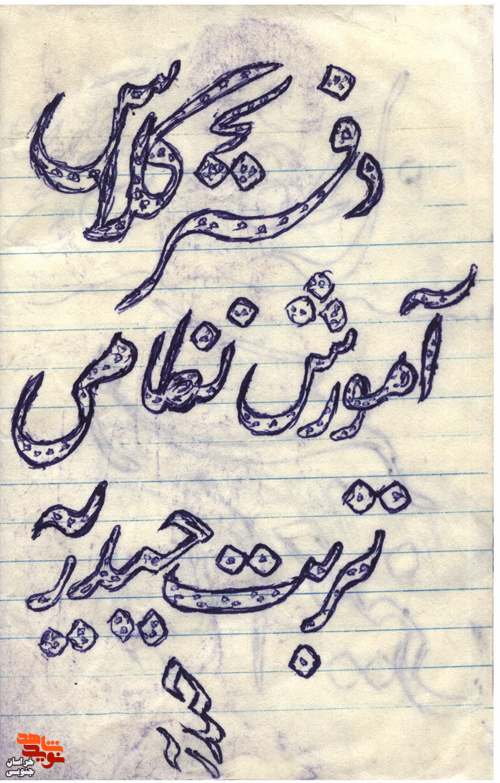 دفترچه کلاس
آموزش نظامی
تربت حیدریه
نوید شاهد
خراسان جنوبی